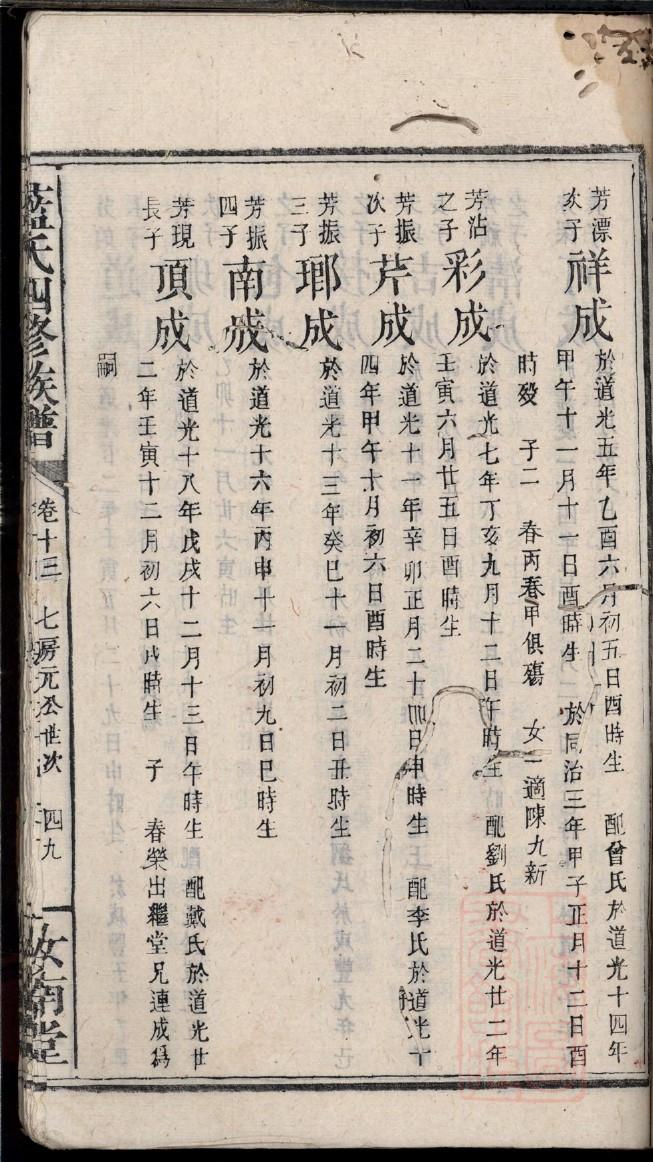 芳漂次子 祥成 於道光五年乙酉六月初五日酉時生 配曾氏於道光十四年
甲午十一月十一日酉時生 於同治三年甲子正月十二日酉
時殁 子二 春丙春甲俱殤 女一適陳九新
芳沾之子 彩成 於道光七年丁亥九月十二日午時生 配劉氏於道光廿二年
壬寅六月廿五日酉時生
芳振次子 芹成 於道光十一年辛卯正月二十四日申時生 配李氏於道光十
四年甲午十月初六日酉時生
芳振三子 瑯成 於道光十三年癸巳十一月初二日丑時生
芳振四子 南成 於道光十六年丙申十一月初九日巳時生
芳現長子 頂成 於道光十八年戊戌十二月十三日午時生 配戴氏於道光廿
二年壬寅十二月初六日戌時生 子 春榮出繼堂兄連成爲
嗣
藍氏四修族譜 卷十三 七房元公世次 四九 汝南堂